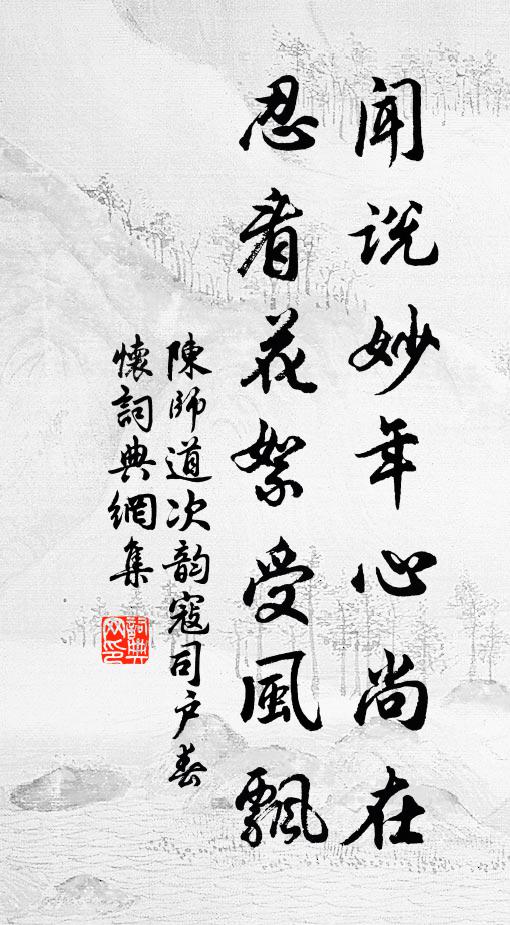 聞説妙年心尚在
忍看花絮受風飄
陳師道次韵寇司户春
懷詞典網集
詞典